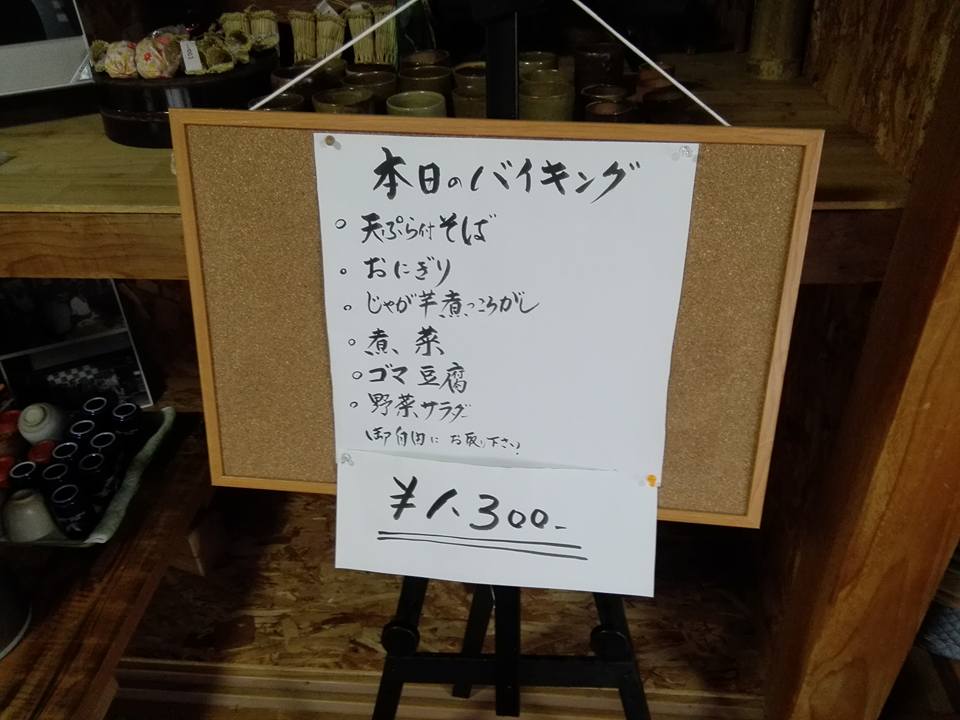 本日のバイキング
○ 天ぷら付そば
○ おにぎり
○ じゃが芋煮っころがし
○ 煮菜
○ ゴマ豆腐
○ 野菜サラダ
御自由にお取り下さい!
¥1,300-